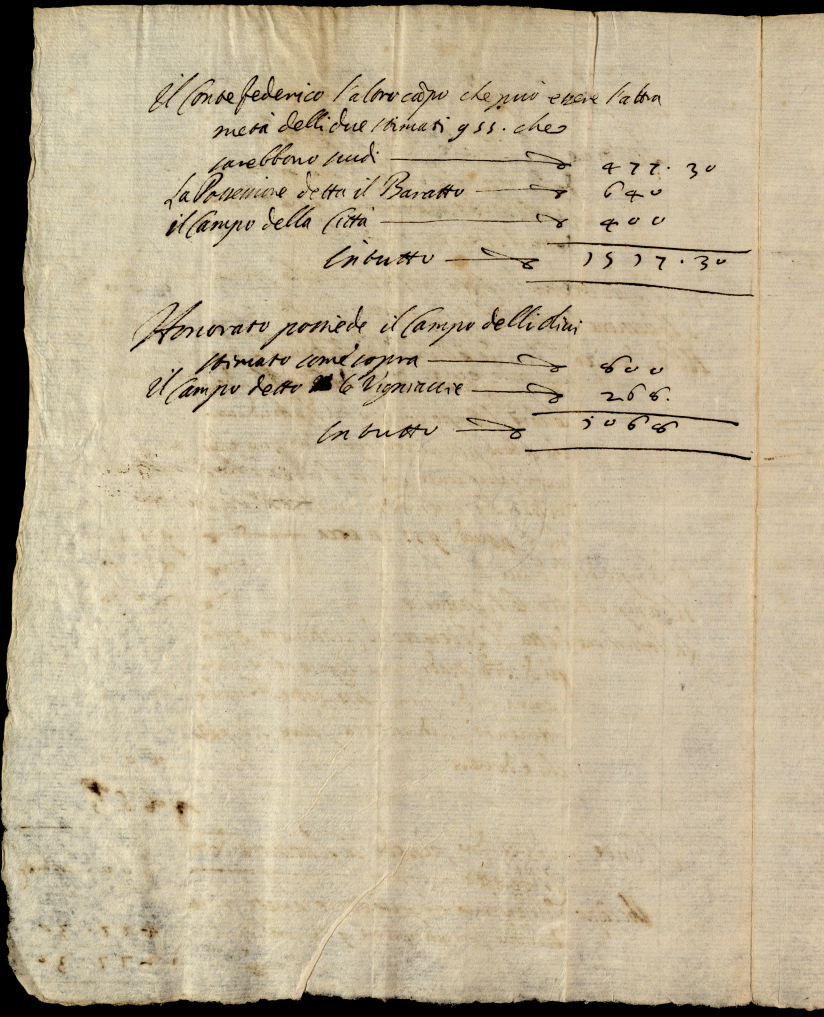 Il Conte federico l'altro cãpo che può essere l'altra
metà delli due stimati 955. che
sarebbono scudi 477.30
La Possessione detta il Baratto 640
il Campo della Città 400
In tutto 1517.30
Honorato possiede il Campo delli Olivi
stimato come sopra 800
Il Campo detto le Vigniaccie 268.
In tutto 1068